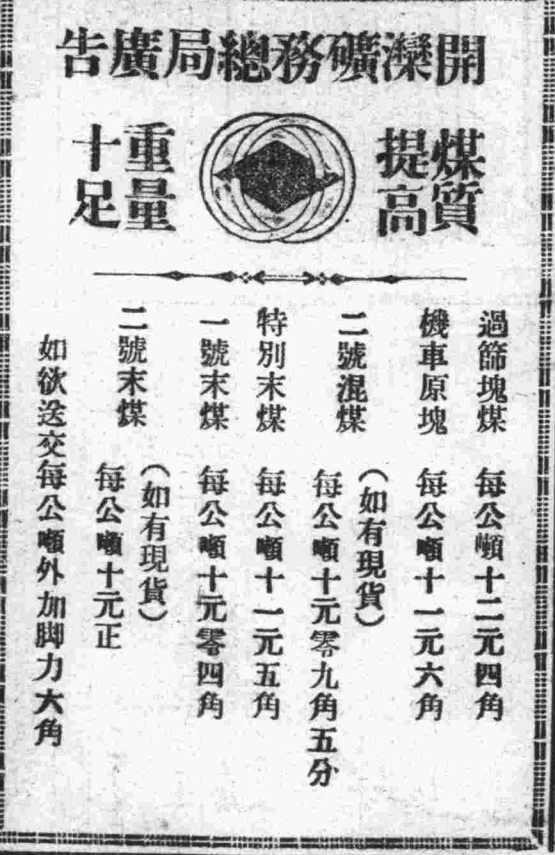 開灤礦務總局廣告
煤質提高
重量十足
過篩塊煤 每公噸十二元四角
機車原塊 每公噸十一元六角
二號混煤（如有現貨）
每公噸十元零九角五分
特別末煤 每公噸十一元五角
一號末煤 每公噸十元零四角
二號末煤（如有現貨）
每公噸十元正
如欲送交每公噸外加脚力六角